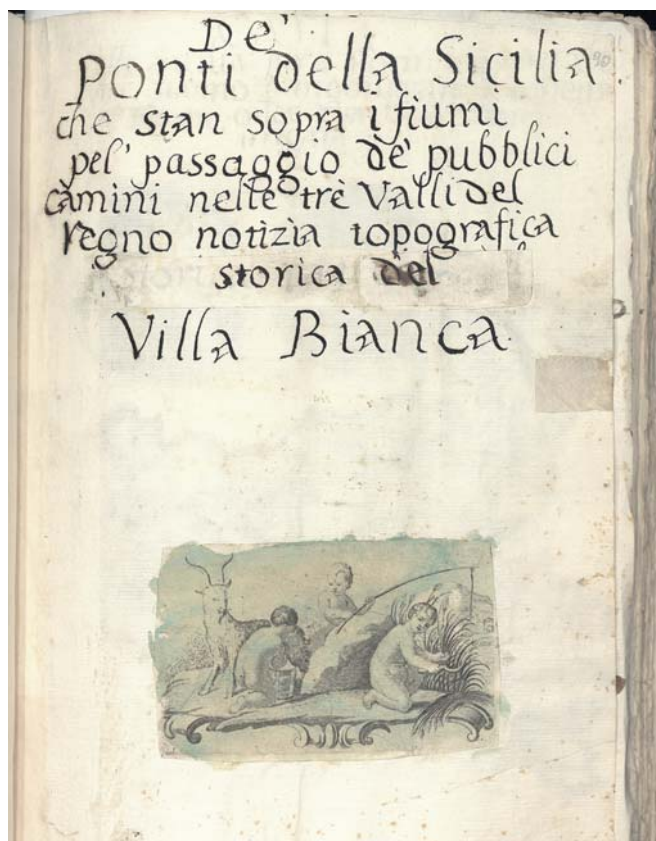 De'
Ponti della Sicilia
che stan sopra i fiumi
pel' passaggio de' pubblici
camini nelle trè Valli del
regno notizia topografica
storica del
Villa Bianca